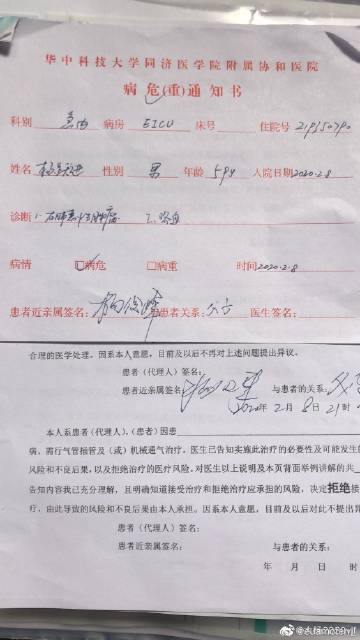 华中科技大学同济医学院附属协和医院
病危(重)通知书
科别 急内 病房 EICU 床号 住院号
姓名 性别 男 年龄 59y 入院日期 2020.2.8
诊断: 1.右肺恶性肿瘤 2.
病情 ☑病危 □病重 时间 2020.2.8
患者近亲属签名: 患者关系: 父子 医生签名:
合理的医学处理。因系本人意愿，目前及以后不再对上述问题提出异议。
患者（代理人）签名：
患者近亲属签名 与患者的关系: 父
2020年 2月 8日 21时
本人系患者（代理人），（患者）因患
病，需行气管插管及（或）机械通气治疗，医生已告知实施此治疗的必要性及可能发生的
风险和不良后果，以及拒绝治疗的医疗风险。对医生以上说明及本页背面举例讲解的共
告知内容我已充分理解，且明确知道接受治疗和拒绝治疗应承担的风险，决定拒绝接
疗，由此导致的风险和不良后果由本人承担。因系本人意愿，目前及以后对此不提出异
患者（代理人）签名：
患者近亲属签名： 与患者的关系：
年 月 日 时